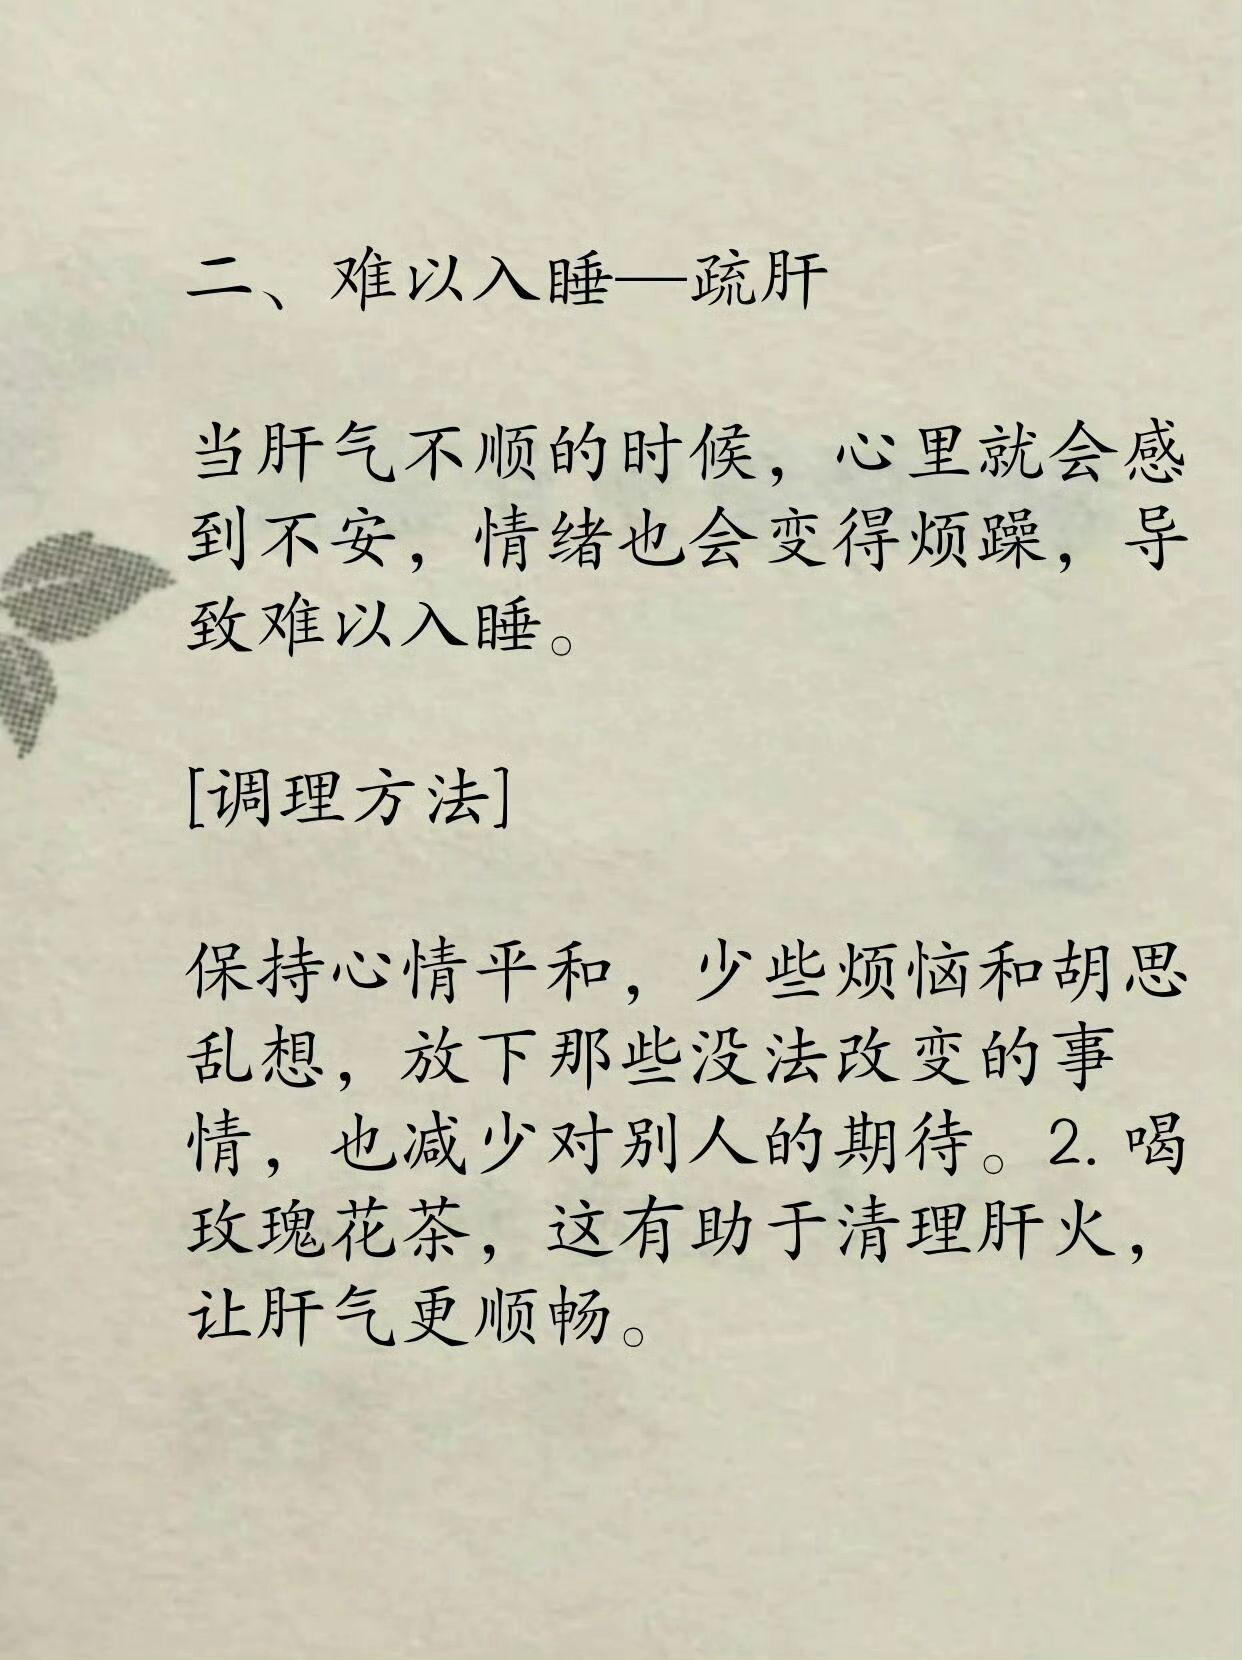 二、难以入睡—疏肝
当肝气不顺的时候，心里就会感
到不安，情绪也会变得烦躁，导
致难以入睡。
[调理方法]
保持心情平和，少些烦恼和胡思
乱想，放下那些没法改变的事
情，也减少对别人的期待。2. 喝
玫瑰花茶，这有助于清理肝火，
让肝气更顺畅。